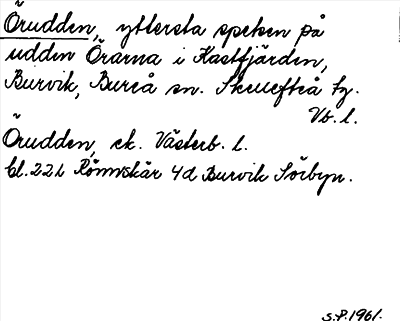 Örudden, yttersta spetsen på
udden Örarna i Kastfjärden,
Burvik, Bureå sn. Skellefteå tg.
Vb. l.
Örudden, ek. Västerb. l.
bl. 22 L Rönnskär 4d Burvik Sörbyn.
S.P. 1961.